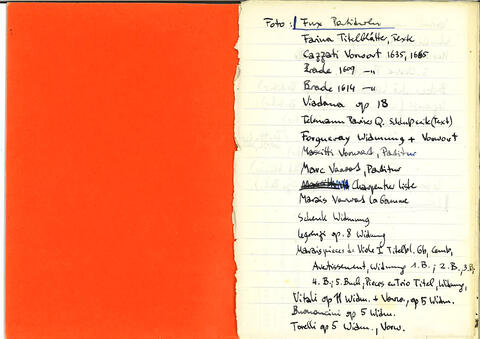 Foto : Fux Partituren
Farina Titelblätter, Texte
Cazzati Vorwort 1635, 1665
Brade 1609 -„-
Brade 1614 -„-
Viadana op 18
Telemann Pariser Q. (Text)
Forqueray Widmung + Vorwort
Mascitti Vorwort, Partitur
Marc Vorwort, Partitur
Charpentier Liste
Marais Vorwort La Gamme
Schenk Widmung
Legrenzi op. 8 Widmung
Marais pieces de Viole I. Titelbl. Gb, Cemb,
Avertissement, Widmung 1. B.; 2. B., 3. B.;
4. B.; 5. Buch, Pieces en Trio Titel, Widmung,
Vitali op 11 Widm. + Vorw., op 5 Widm.
Buonancini op 5 Widm.
Torelli op 5 Widm., Vorw.